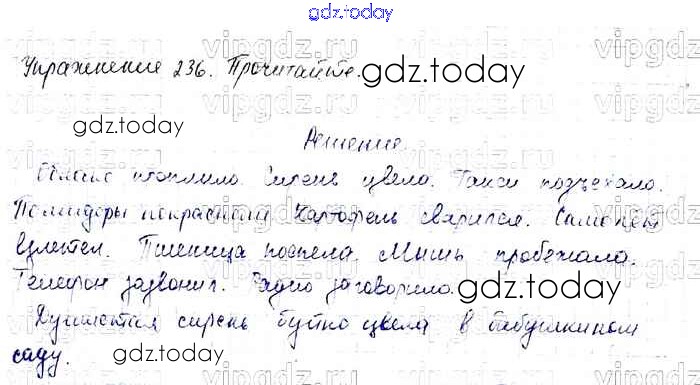 gdz.today
Упражнение 236. Прочитайте. gdz.today
gdz.today
Решение.
Облако поплыло. Сирень цвела. Такси подъехало.
Помидоры покраснели. Картофель сварился. Самолет
взлетел. Пшеница поспела. Мышь пробежала.
Телефон зазвонил. Радио заговорило. gdz.today
Душистая сирень буйно цвела в бабушкином
саду. gdz.today